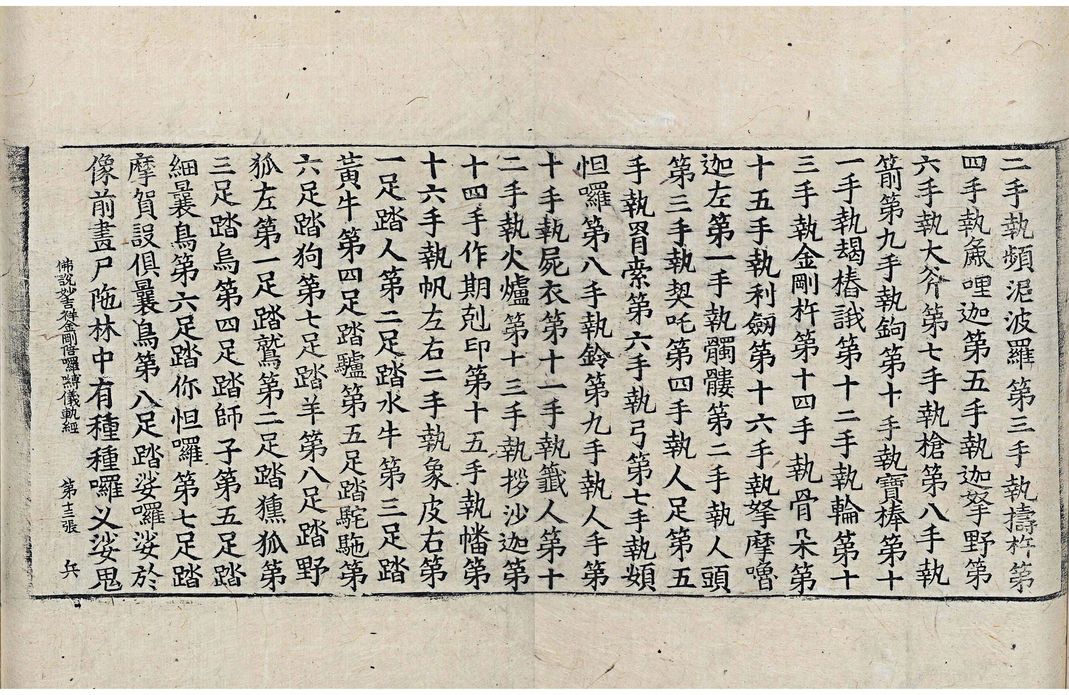 二手執頻泥波羅第三手執擣杵第
四手執哩迦第五手執迦拏野第
六手執大斧第七手執槍第八手執
箭第九手執鉤第十手執寶棒第十
一手執朅樁誐第十二手執輪第十
三手執金剛杵第十四手執骨朵第
十五手執利劒第十六手執拏摩嚕
迦左第一手執髑髏第二手執人頭
第三手執契吒第四手執人足第五
手執罥索第六手執弓第七手執頞
怛囉第八手執鈴第九手執人手第
十手執屍衣第十一手執籤人第十
二手執火爐第十三手執拶沙迦第
十四手作期剋印第十五手執幡第
十六手執帆左右二手執象皮右第
一足踏人第二足踏水牛第三足踏
黃牛第四足踏驢第五足踏駝駞第
六足踏狗第七足踏羊第八足踏野
狐左第一足踏鷲第二足踏獯狐第
三足踏烏第四足踏師子第五足踏
細曩鳥第六足踏你怛囉第七足踏
摩賀設俱曩鳥第八足踏娑囉娑於
像前畫尸陁林中有種種囉义娑鬼
佛說妙吉祥金剛陪囉縛儀軌經 第十三張 兵